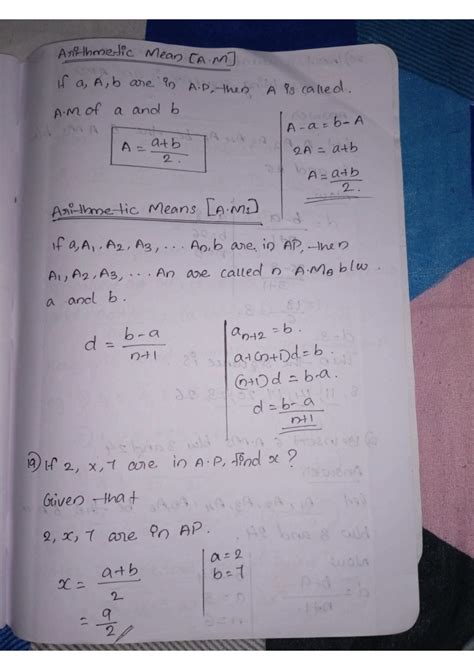 Arithmetic Mean [A.M]
If a, A, b are in A.P, then A is called.
A.M of a and b
A = a+b/2.
A-a = b-A
2A = a+b
A = a+b/2.
Arithmetic Means [A.Ms]
If a, A1, A2, A3, ... An, b are in AP, then
A1, A2, A3, ... An are called n A.Ms b/w.
a and b.
d = b-a/n+1
an+2 = b.
a+(n+1)d = b.
(n+1)d = b-a.
d = b-a/n+1
If 2, x, 7 are in A.P, find x?
Given that
2, x, 7 are in AP.
x = a+b/2
= 9/2
a = 2
b = 7